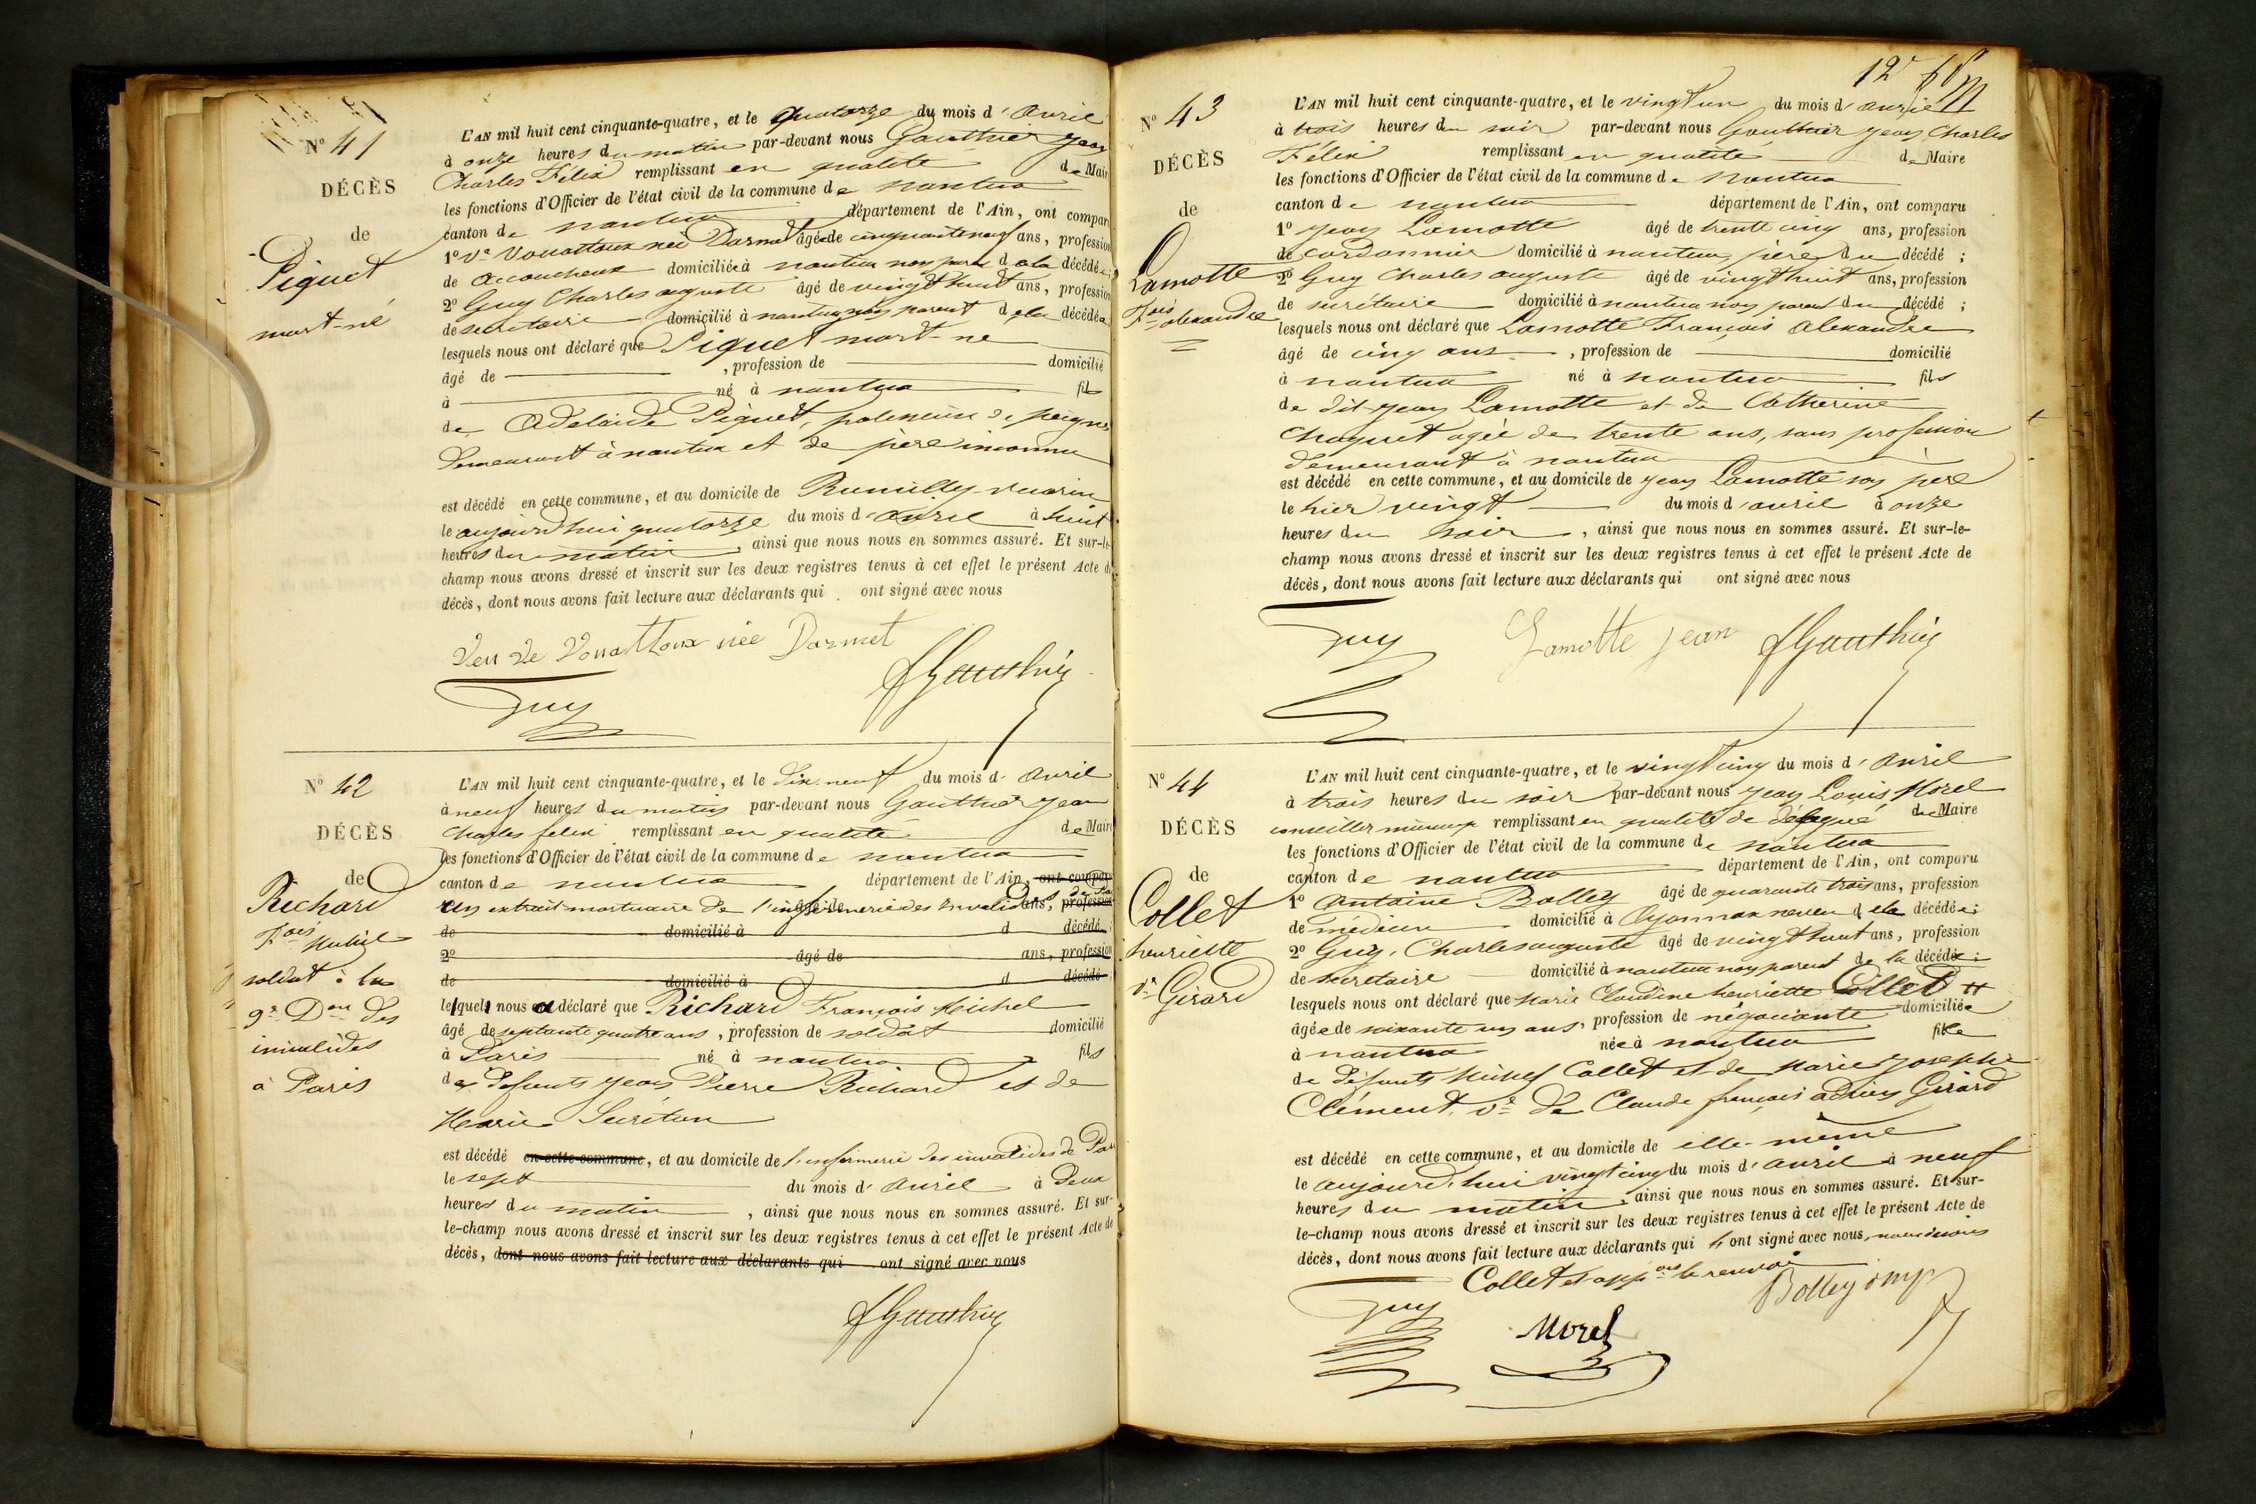 N° 41
DÉCÈS
de
Piquet
mort-né
L'AN mil huit cent cinquante-quatre, et le quatorze du mois d'avril
à onze heures du matin par-devant nous Gauthier Jean
Charles Félix remplissant en qualité de Maire
les fonctions d'Officier de l'état civil de la commune de nantua
canton de nantua département de l'Ain, ont comparu
1° Ve Vouattoux née Darmet âgée de cinquante neuf ans, profession
de accoucheuse domiciliée à nantua non parente de la décédée;
2° Guy Charles auguste âgé de vingt huit ans, profession
de secrétaire domicilié à nantua non parent de la décédée
lesquels nous ont déclaré que Piquet mort-né
âgé de , profession de domicilié
à né à nantua fils
de Adelaide Piquet, polisseuse de peignes
demeurant à nantua et de père inconnu
est décédé en cette commune, et au domicile de Rumilly
le aujourd'hui quatorze du mois d'avril à huit
heures du matin, ainsi que nous nous en sommes assuré. Et sur-le-
champ nous avons dressé et inscrit sur les deux registres tenus à cet effet le présent Acte de
décès, dont nous avons fait lecture aux déclarants qui ont signé avec nous
Veu ve Vouattoux née Darmet
Guy
fGauthier
N° 42
DÉCÈS
de
Richard
Fois Michel
soldat à la
9e Don des
invalides
à Paris
L'AN mil huit cent cinquante-quatre, et le dix-neuf du mois d'avril
à neuf heures du matin par-devant nous Gauthier Jean
Charles felix remplissant en qualité de Maire
les fonctions d'Officier de l'état civil de la commune de nantua
canton de nantua département de l'Ain, ont comparu
un extrait mortuaire de l'infirmerie des Invalides âgé de ans, profession
de domicilié à d décédé
2° âgé de ans, profession
de domicilié à d décédé
lequel nous a déclaré que Richard François Michel
âgé de septante quatre ans, profession de soldat domicilié
à Paris né à nantua fils
des défunts Jean Pierre Richard et de
Marie Secrétan
est décédé en cette commune, et au domicile de l'infirmerie des invalides de Paris
le sept du mois d'avril à deux
heures du matin, ainsi que nous nous en sommes assuré. Et sur-
le-champ nous avons dressé et inscrit sur les deux registres tenus à cet effet le présent Acte de
décès, dont nous avons fait lecture aux déclarants qui ont signé avec nous
fGauthier
N° 43
DÉCÈS
de
Lamotte
Fois alexandre
L'AN mil huit cent cinquante-quatre, et le vingt un du mois d'avril
à trois heures du soir par-devant nous Gauthier Jean Charles
Félix remplissant en qualité de Maire
les fonctions d'Officier de l'état civil de la commune de nantua
canton de nantua département de l'Ain, ont comparu
1° Jean Lamotte âgé de trente cinq ans, profession
de cordonnier domicilié à nantua, père du décédé;
2° Guy Charles auguste âgé de vingt huit ans, profession
de secrétaire domicilié à nantua non parent du décédé;
lesquels nous ont déclaré que Lamotte François Alexandre
âgé de cinq ans, profession de domicilié
à nantua né à nantua fils
de dit Jean Lamotte et de Catherine
Choquet agée de trente ans, sans profession
demeurant à nantua
est décédé en cette commune, et au domicile de Jean Lamotte son père
le hier vingt du mois d'avril à onze
heures du soir, ainsi que nous nous en sommes assuré. Et sur-le-
champ nous avons dressé et inscrit sur les deux registres tenus à cet effet le présent Acte de
décès, dont nous avons fait lecture aux déclarants qui ont signé avec nous
Guy Lamotte Jean fGauthier
N° 44
DÉCÈS
de
Collet
henriette
ve Girard
L'AN mil huit cent cinquante-quatre, et le vingt cinq du mois d'avril
à trois heures du soir par-devant nous Jean Louis Morel
conseiller municip remplissant en qualité de délégué du Maire
les fonctions d'Officier de l'état civil de la commune de nantua
canton de nantua département de l'Ain, ont comparu
1° Antoine Bolley âgé de quarante trois ans, profession
de médecin domicilié à Oyonnax neveu de la décédée;
2° Guy, Charles auguste âgé de vingt huit ans, profession
de secrétaire domicilié à nantua non parent de la décédée;
lesquels nous ont déclaré que Marie Claudine henriette Collet
âgée de soixante un ans, profession de négociante domiciliée
à nantua née à nantua fille
de défunts Michel Collet et de Marie Josephe
Clément, ve de Claude françois adrien Girard
est décédé en cette commune, et au domicile de elle-même
le aujourd'hui vingt cinq du mois d'avril à neuf
heures du matin, ainsi que nous nous en sommes assuré. Et sur-
le-champ nous avons dressé et inscrit sur les deux registres tenus à cet effet le présent Acte de
décès, dont nous avons fait lecture aux déclarants qui ont signé avec nous,
Collet et le renvoi
Guy Morel Bolley dmp